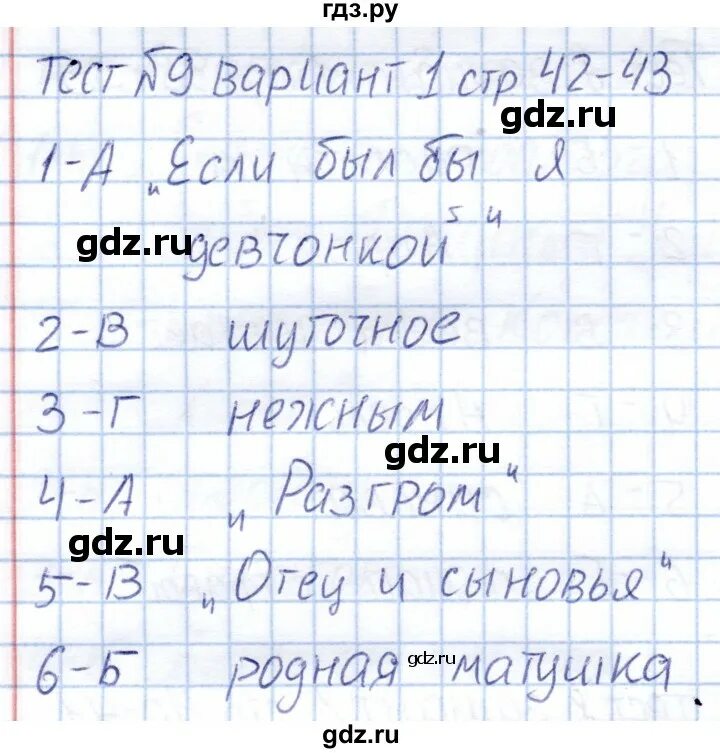 гдз.ру
Тест №9 вариант 1 стр 42-43
gdz.ru
1-А „Если был бы я
gdz.ru
девчонкой"
2-В шуточное
3-Г нежным
gdz.ru
4-А „Разгром"
gdz.ru
5-В „Отец и сыновья"
gdz.ru
6-Б родная матушка.
gdz.ru